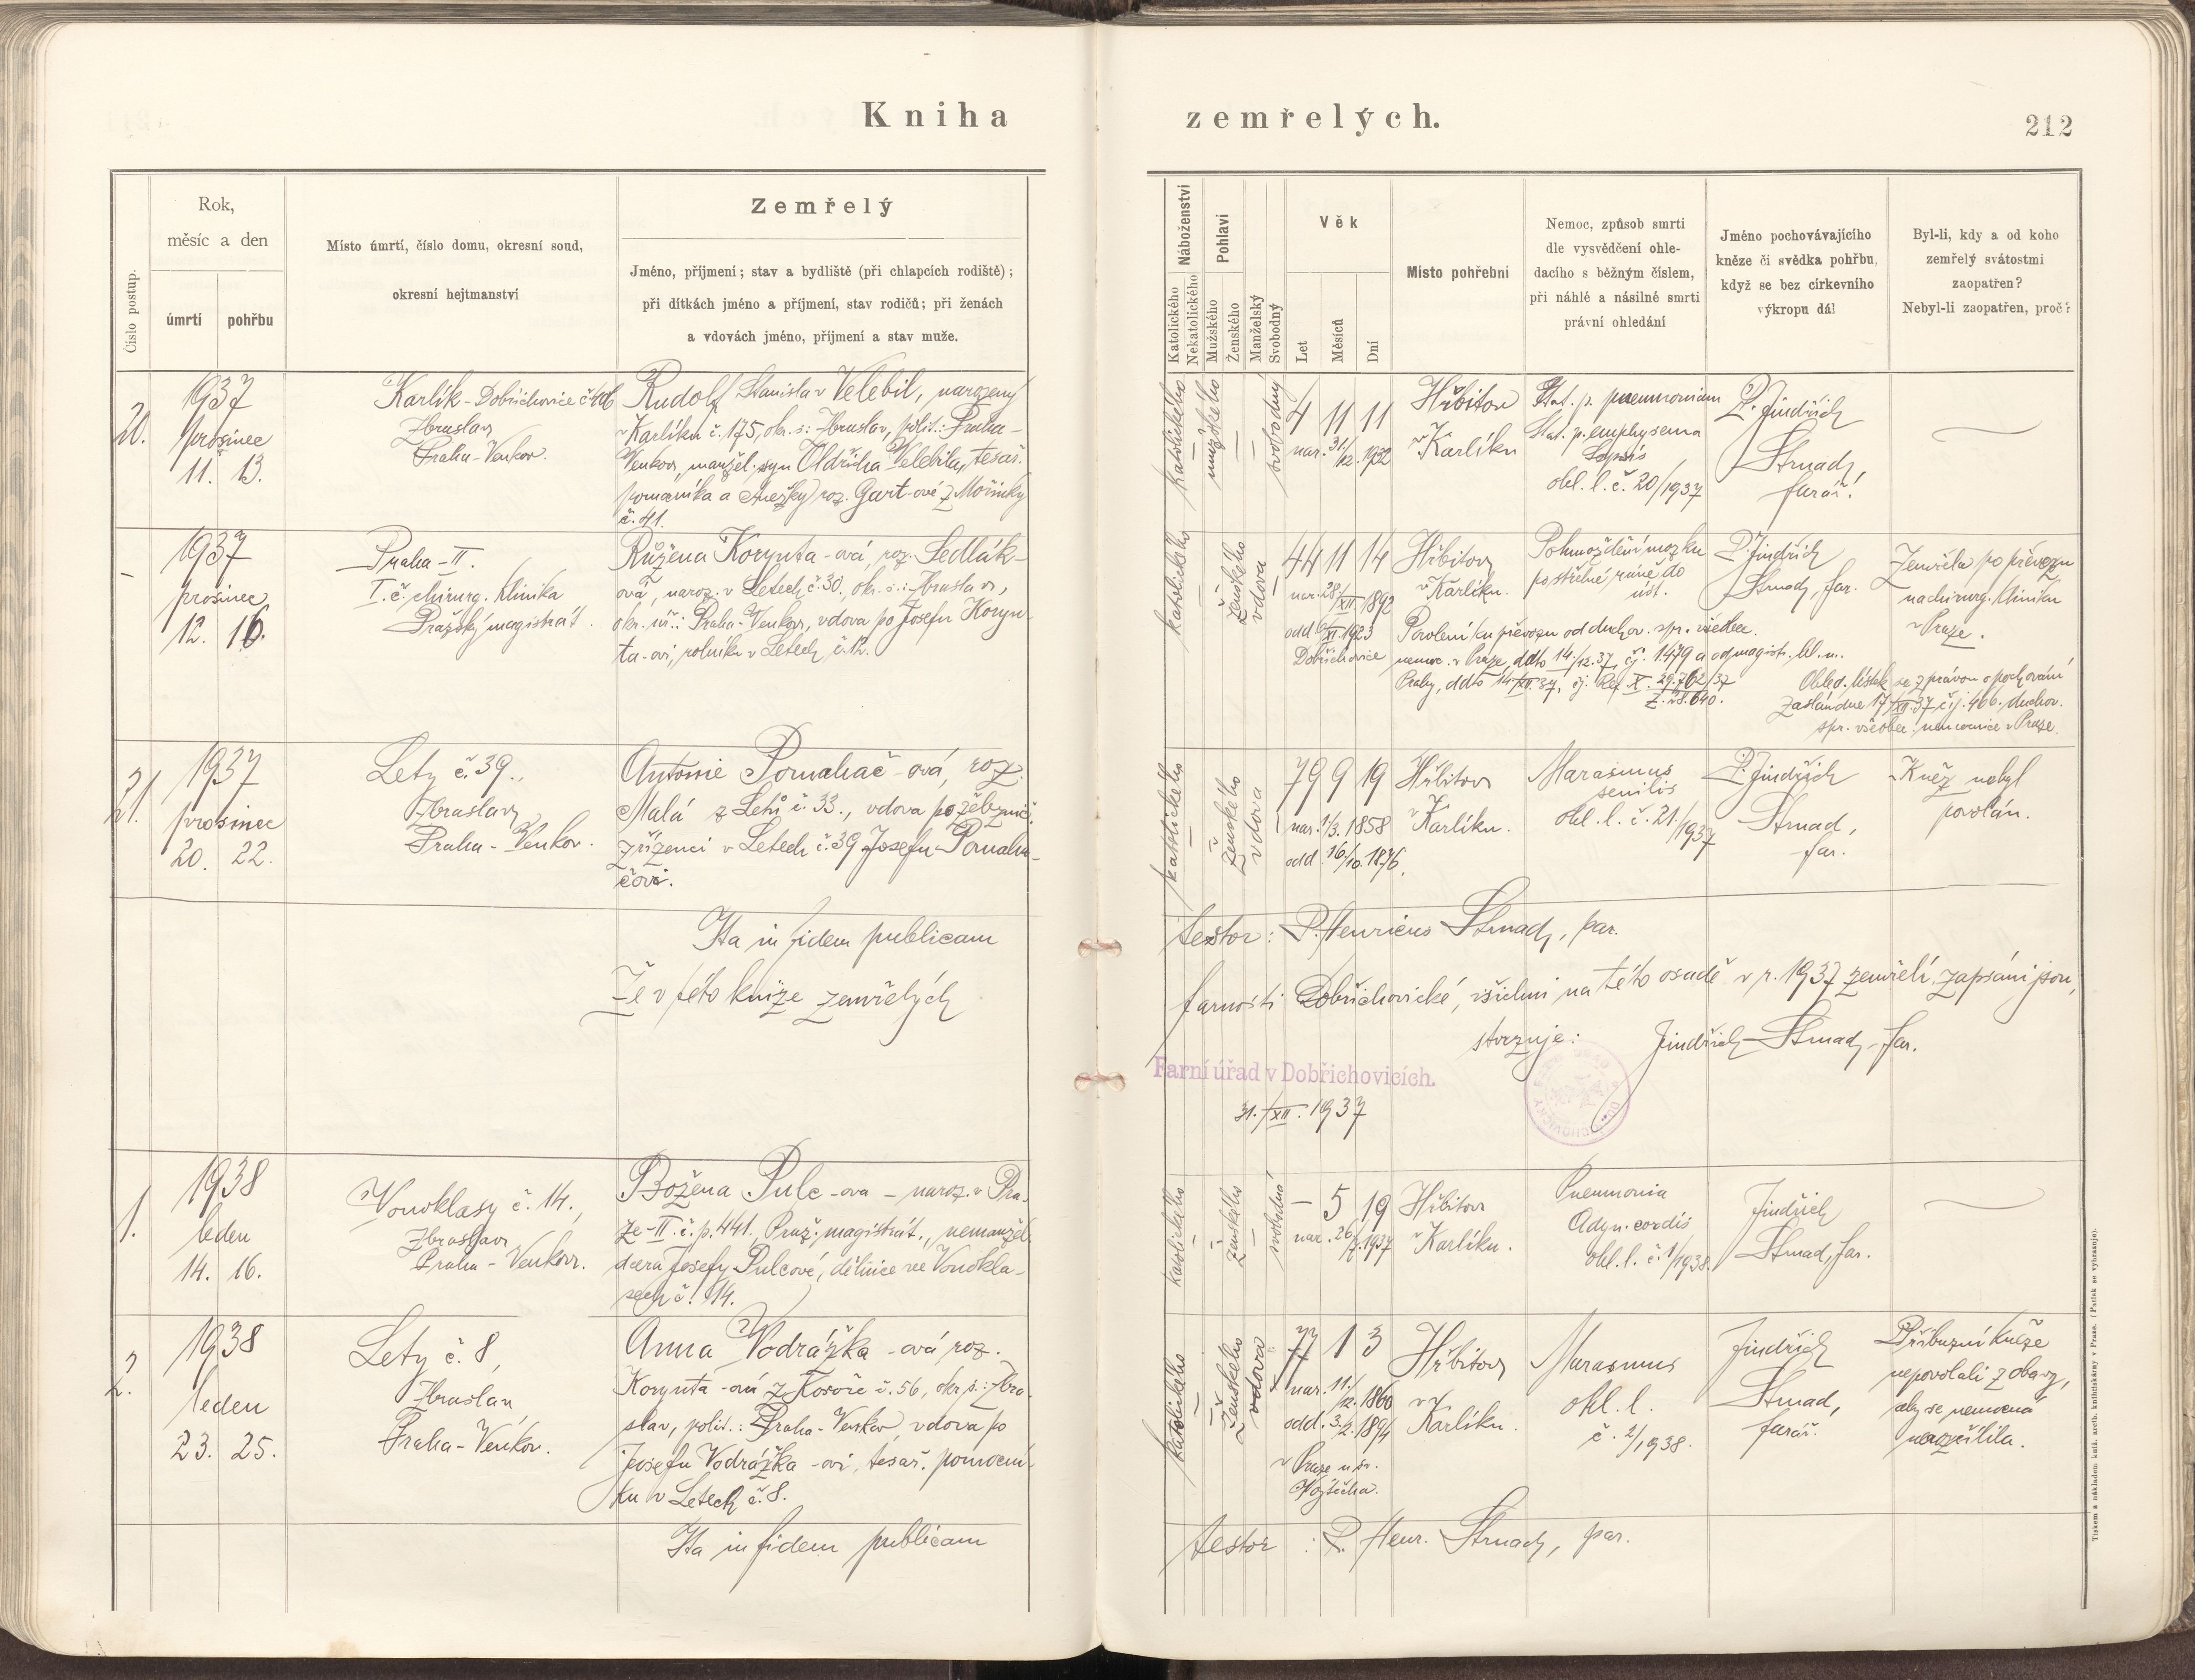 Kniha zemřelých.
212
Číslo postup.
Rok,
měsíc a den
úmrtí
pohřbu
Místo úmrtí, číslo domu, okresní soud,
okresní hejtmanství
Zemřelý
Jméno, příjmení; stav a bydliště (při chlapcích rodiště);
při dítkách jméno a příjmení, stav rodičů; při ženách
a vdovách jméno, příjmení a stav muže.
Náboženství
Katolického
Nekatolického
Pohlaví
Mužského
Ženského
Manželský
Svobodný
Věk
Let
Měsíců
Dní
Místo pohřební
Nemoc, způsob smrti
dle vysvědčení ohle-
dacího s běžným číslem,
při náhlé a násilné smrti
právní ohledání
Jméno pochovávajícího
kněze či svědka pohřbu,
když se bez církevního
výkropu dál
Byl-li, kdy a od koho
zemřelý svátostmi
zaopatřen?
Nebyl-li zaopatřen, proč?
20.
1937
prosinec
11. 13.
Karlík - Dobřichovice
Zbraslav
Praha-Venkov.
Rudolf Stanislav Velebil, narozený
v Karlíku č. 175, okr. s.: Zbraslav, polit.: Praha-
Venkov, manžel. syn Oldřicha Velebila, tesař.
pomocníka a Anežky roz. Gart-ové z Mořinky
č. 41.
katolického
mužského
svobodný
4 11 11
nar. 31/12. 1932
Hřbitov
v Karlíku
Stat. p. pneumoniam
Stat. p. emphysema
Sepsis
ohl. l. č. 20/1937
P. Jindřich
Strnad,
farář.
–
1937
prosinec
12. 16.
Praha-II.
I. č. chirurg. klinika
Pražský magistrát.
Růžena Korynta-ová, roz. Sedlák-
ová, naroz. v Letech č. 30., okr. s.: Zbraslav,
okr. úř.: Praha-Venkov, vdova po Josefu Koryn-
ta-ovi, rolníku v Letech č. 12.
katolického
ženského
vdova
44 11 14
nar. 28/XII. 1892
odd. 6/XI. 1923
Dobřichovice
Hřbitov
v Karlíku.
Pohmoždění mozku
po střelné ráně do
úst.
P. Jindřich
Strnad, far.
Zemřela po převozu
na chirurg. kliniku
v Praze.
Povolení ku převozu od duchov. spr. všeobec.
nemoc. v Praze, ddto 14/12. 37, čj. 1479 a od magistr. hl. m.
Prahy, ddto 14/XII. 37, čj. Ref. X. 29.762/37
Ž. 28.640.
Ohled. lístek se zprávou o pochování
zaslán dne 17/XII. 37 čj. 466, duchov.
spr. všeobec. nemocnice v Praze.
21.
1937
prosinec
20. 22.
Lety č. 39.,
Zbraslav
Praha-Venkov.
Antonie Pomahač-ová, roz.
Malá z Letů č. 33., vdova po železnič.
zřízenci v Letech č. 39 Josefu Pomaha-
čovi.
katolického
ženského
vdova
79 9 19
nar. 1/3. 1858
odd. 16/10. 1876.
Hřbitov
v Karlíku.
Marasmus
senilis
ohl. l. č. 21./1937
P. Jindřich
Strnad,
far.
Kněz nebyl
povolán.
Ita in fidem publicam testor: P. Henricus Strnad, par.
Že v této knize zemřelých farnosti Dobřichovické, všichni na této osadě v r. 1937 zemřelí, zapsáni jsou,
stvrzuje: Jindřich Strnad, far.
Farní úřad v Dobřichovicích.
31./XII. 1937
1.
1938
leden
14. 16.
Vonoklasy č. 14.,
Zbraslav
Praha-Venkov.
Božena Pulc-ova – naroz. v Pra-
ze-II. č. p. 441, Praž. magistrát., nemanžel.
dcera Josefy Pulcové, dělnice ve Vonokla-
sech č. 14.
katolického
ženského
svobodná
– 5 19
nar. 26/7. 1937
Hřbitov
v Karlíku.
Pneumonia
Adyn. cordis
ohl. l. č. 1/1938.
Jindřich
Strnad, far.
2.
1938
leden
23. 25.
Lety č. 8,
Zbraslav,
Praha-Venkov.
Anna Vodrážka-ová roz.
Korynta-ová z Kosoře č. 56, okr. s.: Zbra-
slav, polit.: Praha-Venkov, vdova po
Josefu Vodrážka-ovi, tesař. pomocní-
ku v Letech č. 8.
katolického
ženského
vdova
77 1 3
nar. 11./12. 1860
odd. 3./2. 1894
v Praze u sv.
Vojtěcha.
Hřbitov
v
Karlíku.
Marasmus
ohl. l.
č. 2/1938.
Jindřich
Strnad,
farář.
Příbuzní kněze
nepovolali z obavy,
aby se nemocná
nerozčílila.
Ita in fidem publicam testor: P. Henr. Strnad, par.
Tiskem a nákladem kniž. arcib. knihtiskárny v Praze. (Patisk se vyhrazuje).